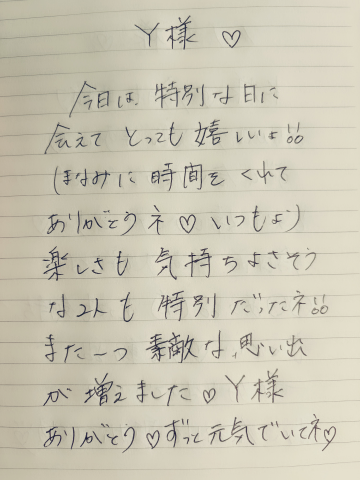 Y様 ♡
今日は、特別な日に
会えて とっても 嬉しいよ!!
ほなみに 時間を くれて
ありがとう ネ ♡ いつもより
楽しさも 気持ちよさそう
な2人も 特別 だったネ!!
また一つ 素敵な、思い出
が 増えました ♡ Y様
ありがとう ♡ ずっと 元気でいてネ♡